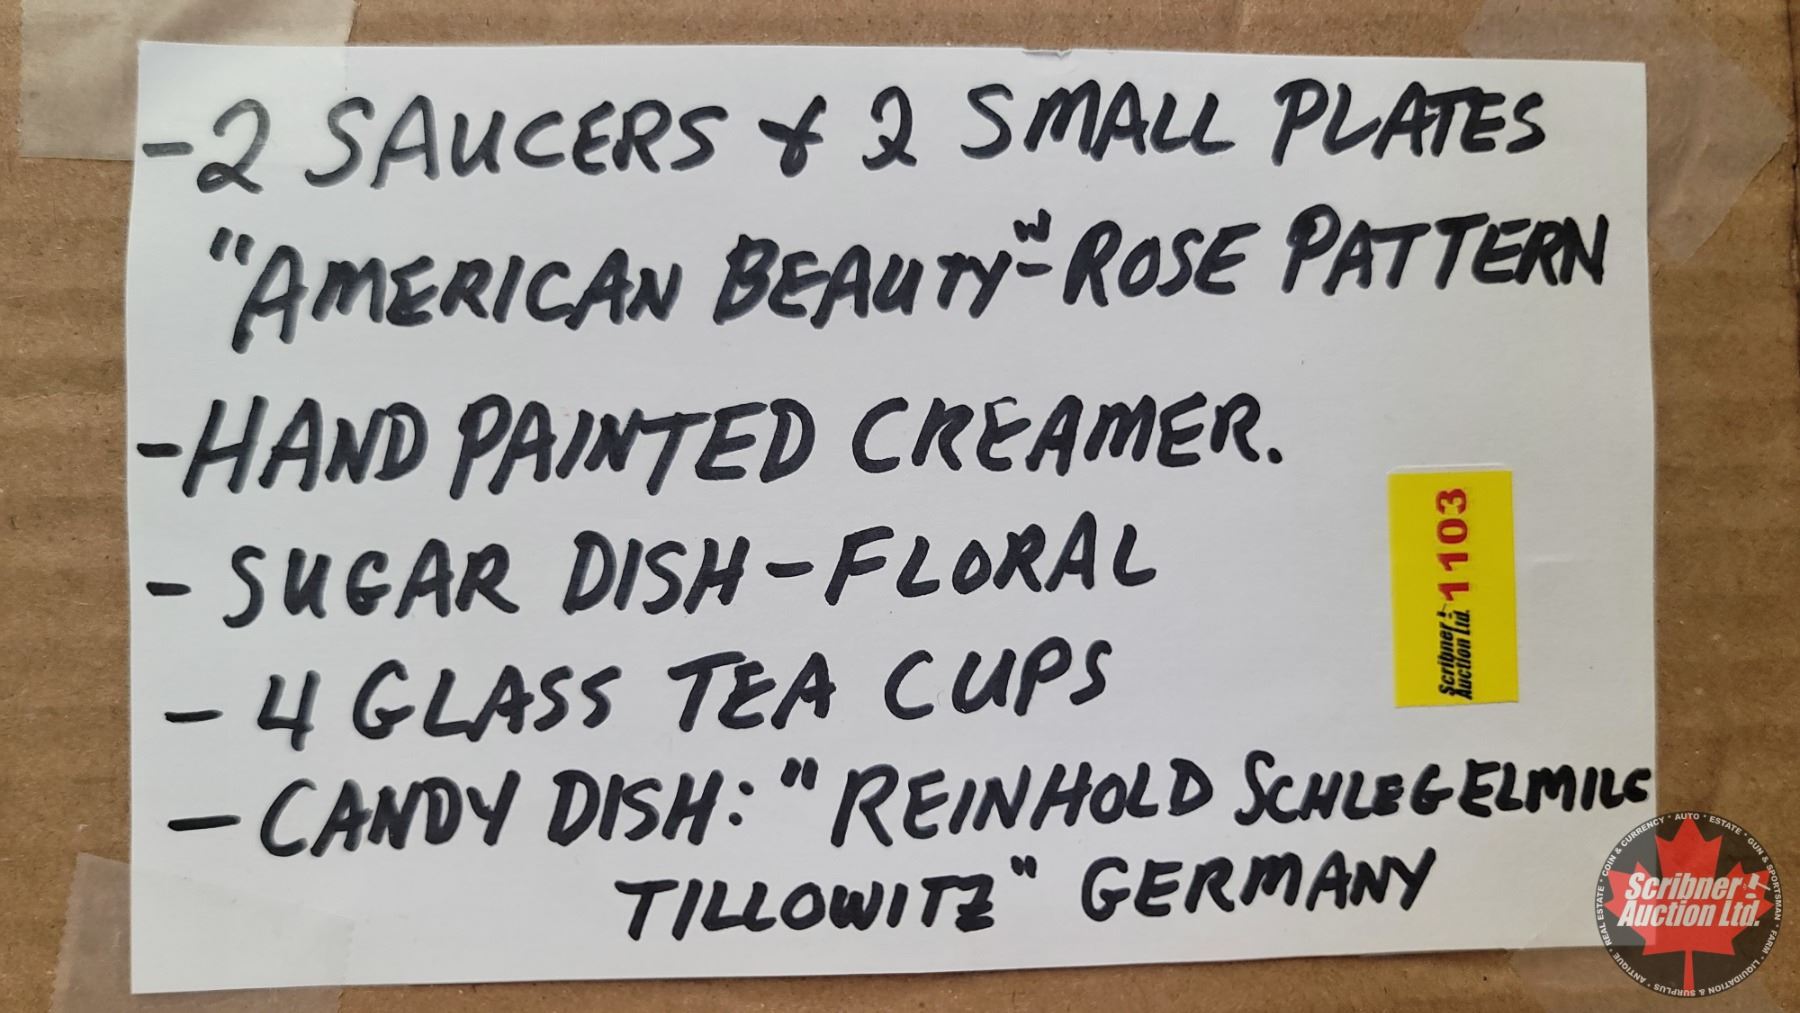 -2 SAUCERS & 2 SMALL PLATES
"AMERICAN BEAUTY"-ROSE PATTERN
-HAND PAINTED CREAMER.
- SUGAR DISH-FLORAL
- 4 GLASS TEA CUPS
- CANDY DISH: "REINHOLD SCHLEGELMILC
TILLOWITZ" GERMANY
Scribner
Auction Ltd. 1103
Scribner
Auction Ltd.
ANTIQUE • REAL ESTATE • COIN & CURRENCY • AUTO • ESTATE • GUN & SPORTSMAN • FARM • LIQUIDATION & SURPLUS •